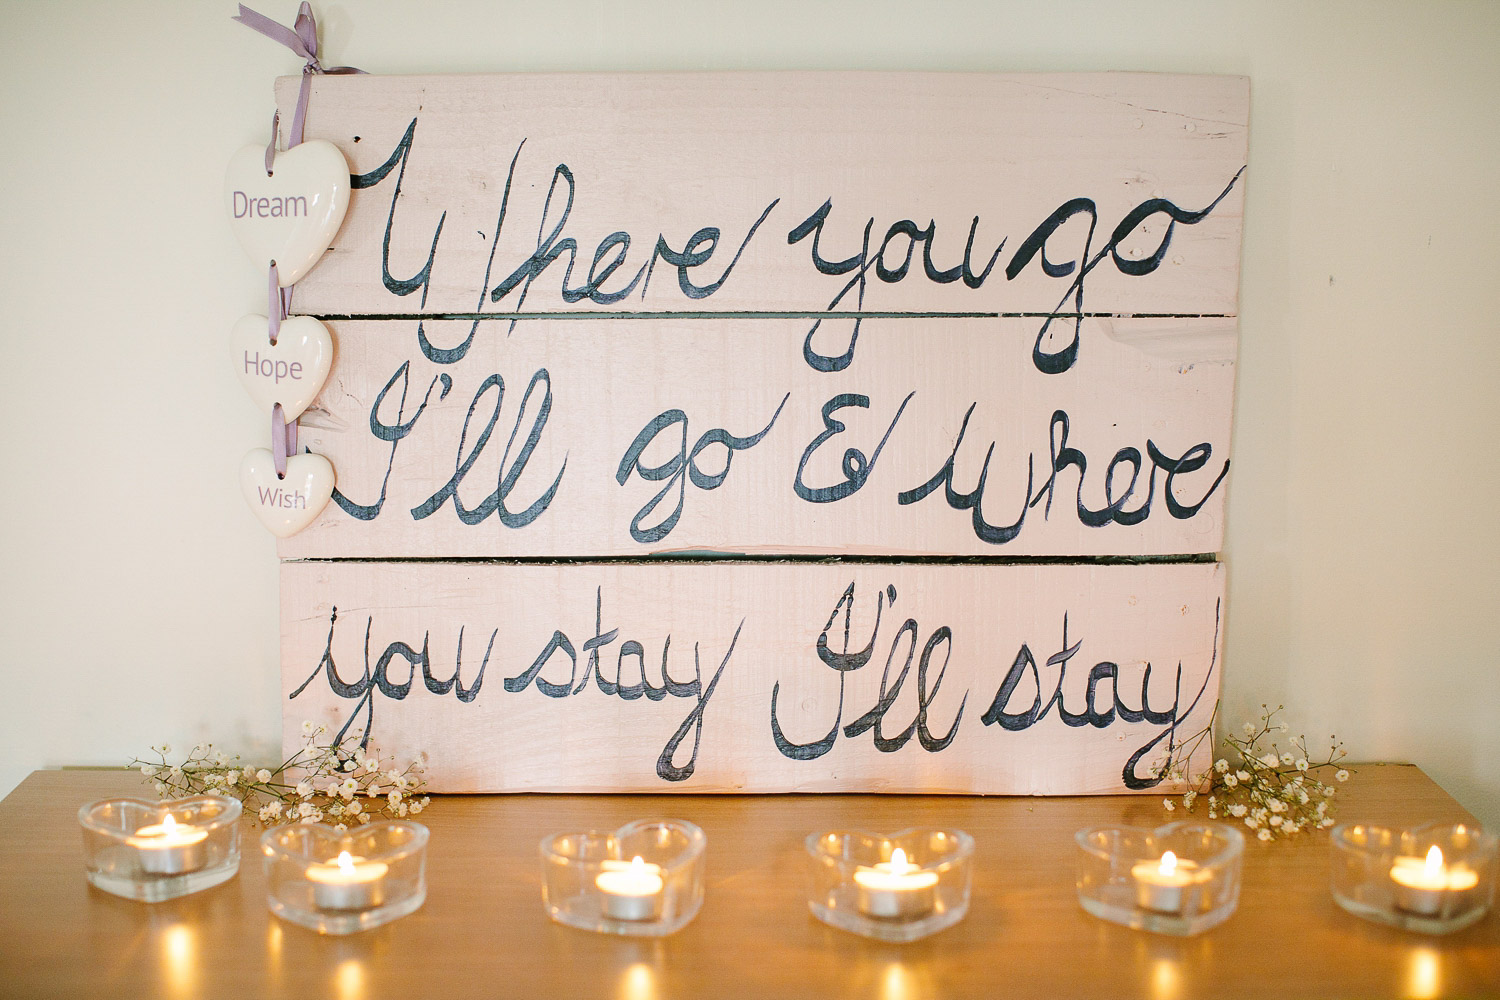 Dream
Hope
Wish
Where you go
I'll go & where
you stay I'll stay